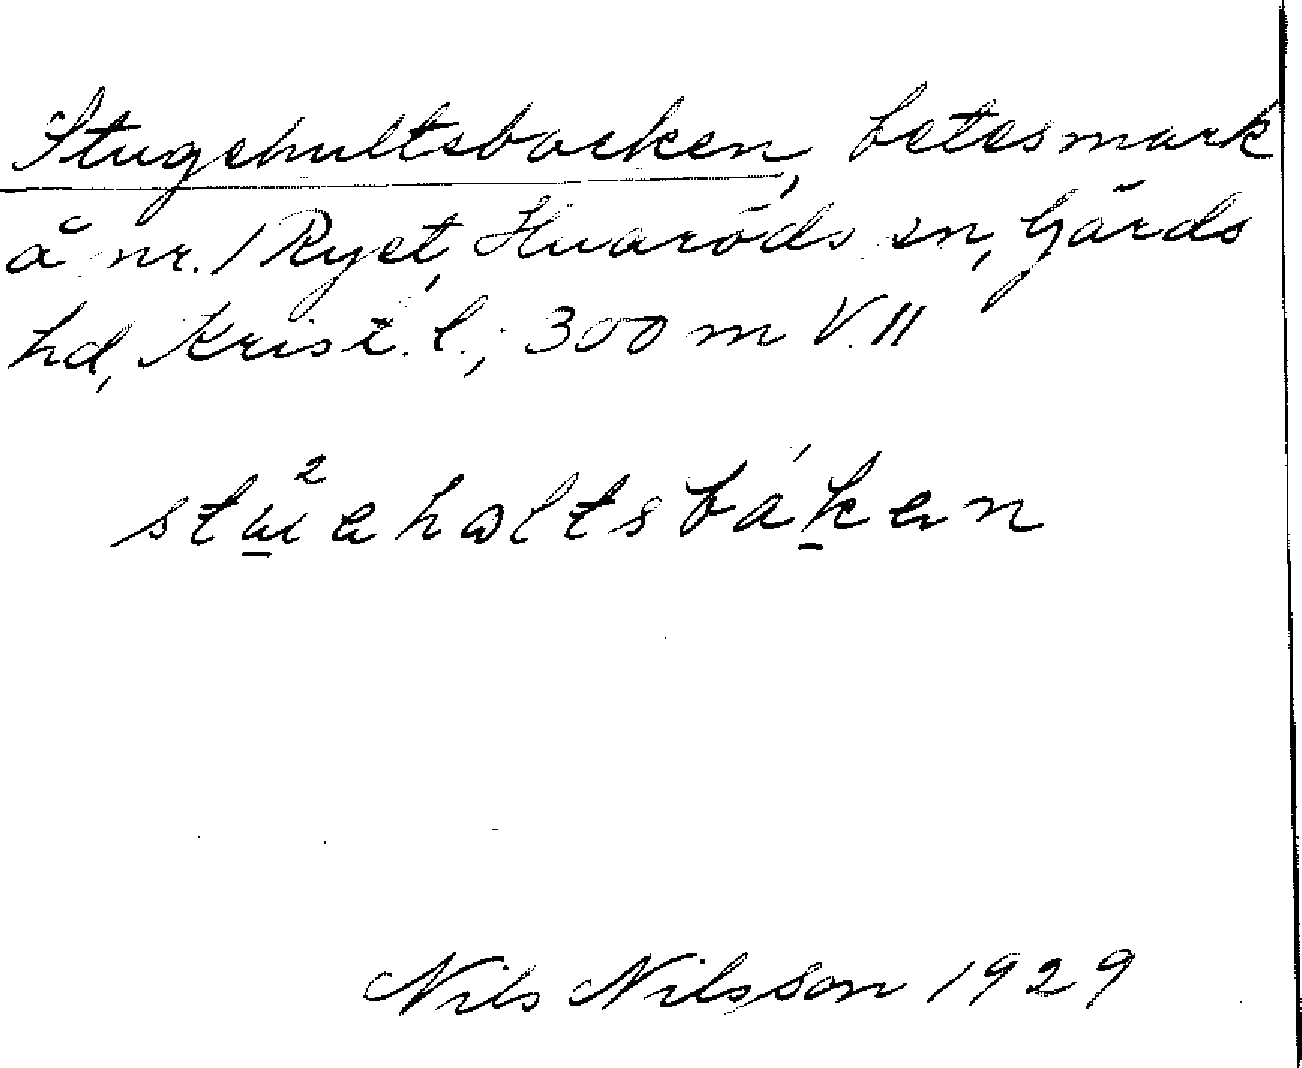 Stugehultsbacken, betesmark
å nr. 1 Ryet, Huaröds sn, Gärds
hd, Krist. l.; 300 m V. 11
stu̱²ɩeholtsbáḵen
Nils Nilsson 1929